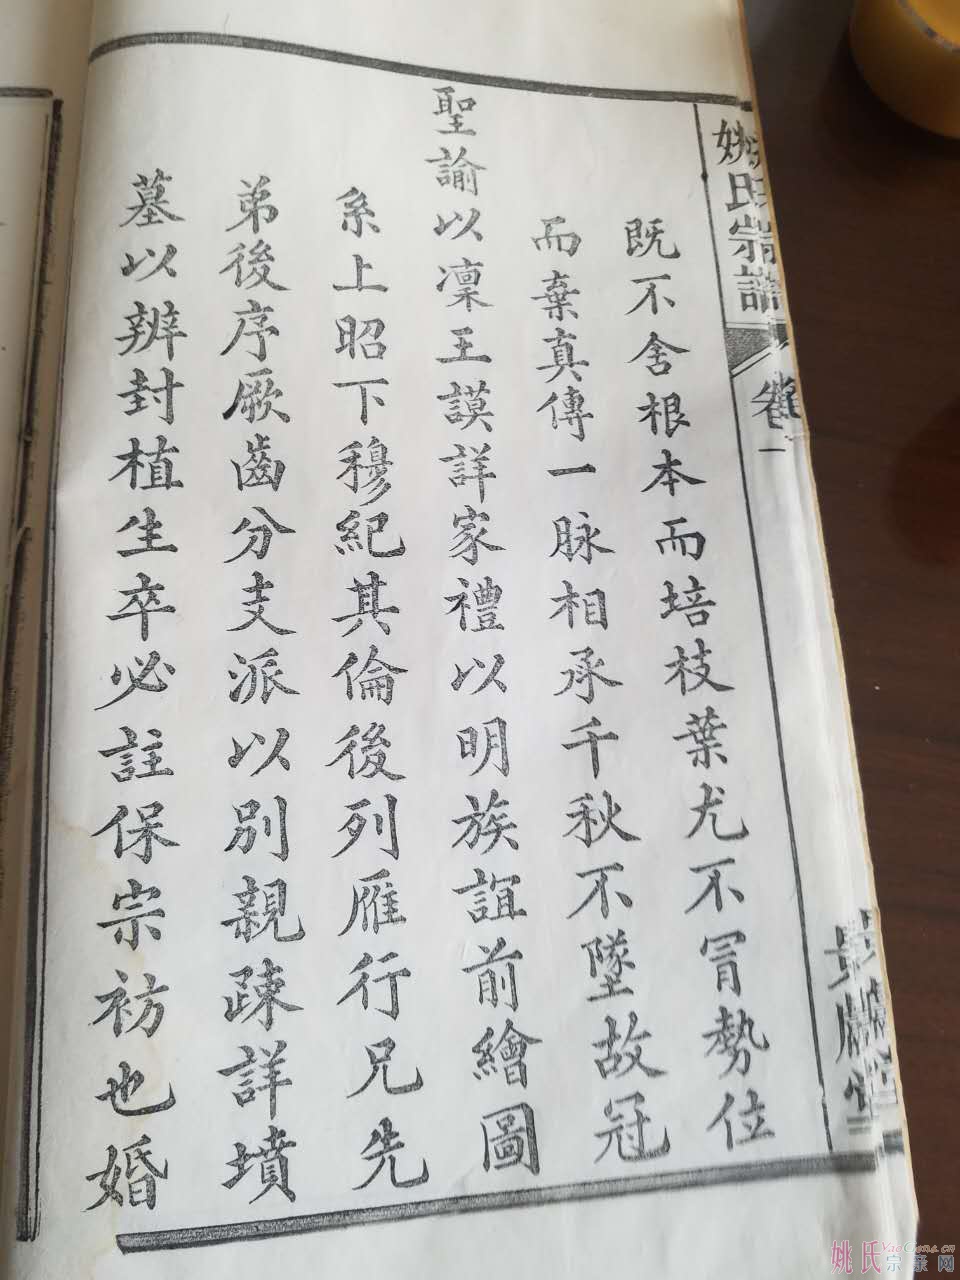 姚氏宗譜
卷一
既不舍根本而培枝葉尤不冐勢位
而棄真傳一脉相承千秋不墜故冠
聖諭以凜王謨詳家禮以明族誼前繪圖
系上昭下穆紀其倫後列雁行兄先
弟後序厥齒分支派以別親疎詳墳
墓以辨封植生卒必註保宗祊也婚
姚氏宗亲网
YaoGens.cn